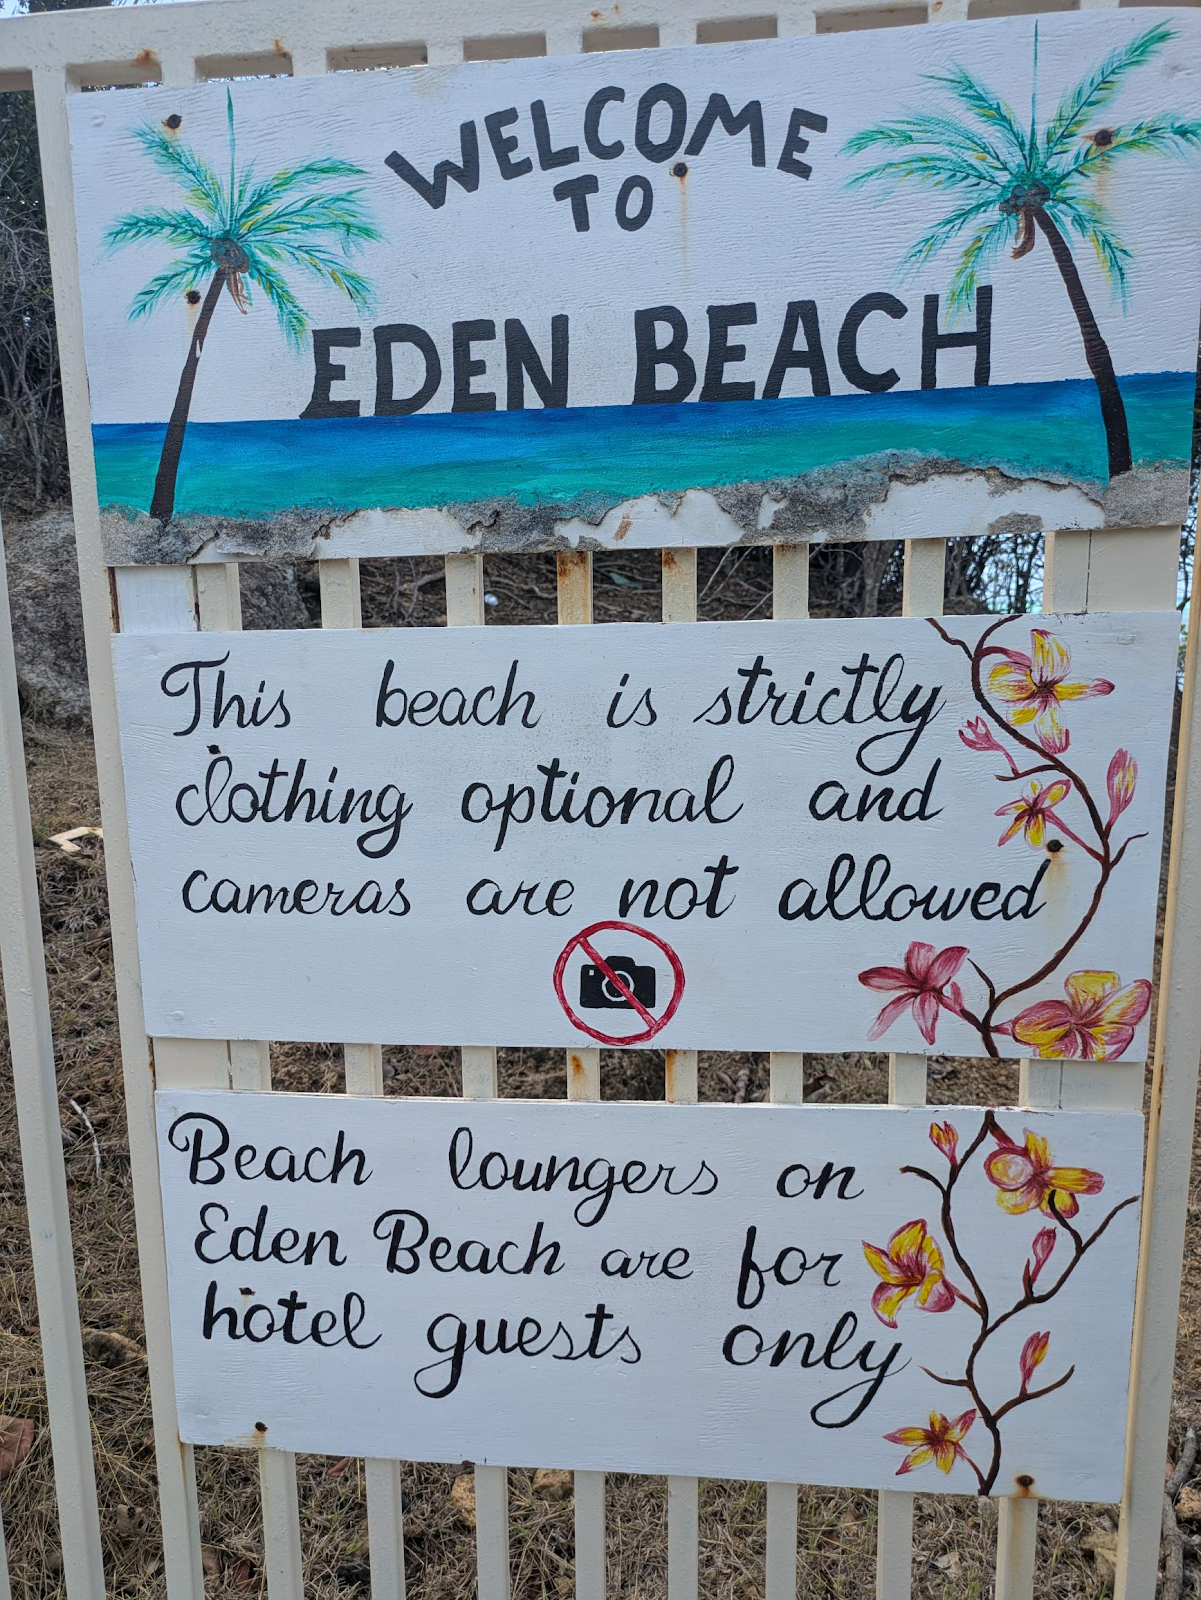 WELCOME
TO
EDEN BEACH
This beach is strictly
clothing optional and
cameras are not allowed
Beach loungers on
Eden Beach are for
hotel guests only